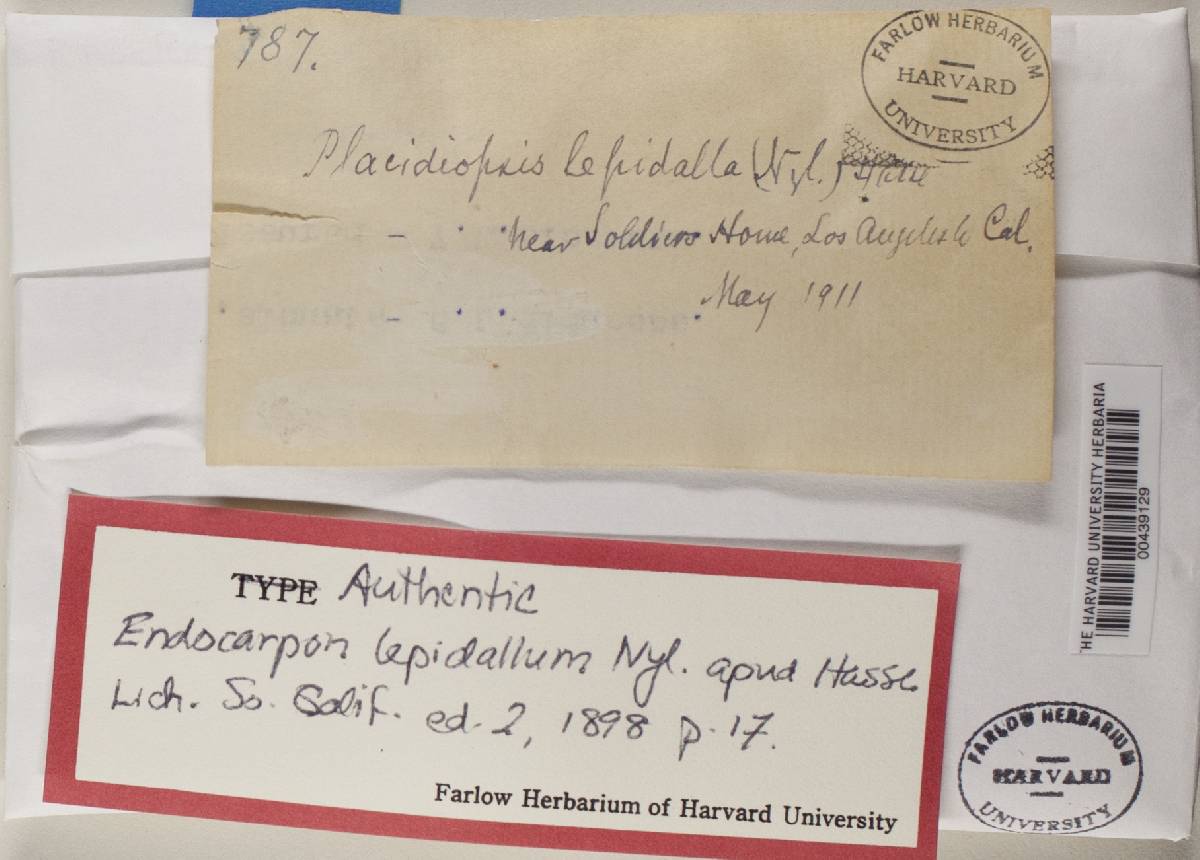 787.
FARLOW HERBARIUM
HARVARD
UNIVERSITY
Placidiopsis lepidalla (Nyl.)
near Soldiers Home, Los Angeles Co Cal.
May 1911
THE HARVARD UNIVERSITY HERBARIA
00439129
TYPE Authentic
Endocarpon lepidallum Nyl. apud Hasse
Lich. So. Calif. ed. 2, 1898 p. 17.
Farlow Herbarium of Harvard University
FARLOW HERBARIUM
HARVARD
UNIVERSITY